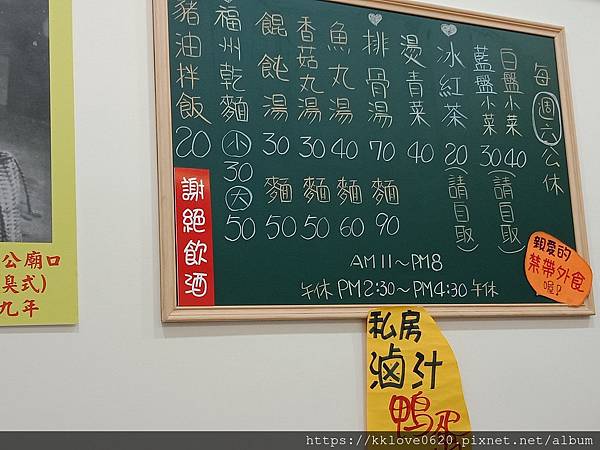 每週六公休
白盤小菜 40
藍盤小菜 30
(請自取)
冰紅茶 20
(請自取)
燙青菜 40
排骨湯 70
麵 90
魚丸湯 40
麵 60
香菇丸湯 30
麵 50
餛飩湯 30
麵 50
福州乾麵
小 30
大 50
豬油拌飯 20
謝絕飲酒
AM11~PM8
午休 PM2:30~PM4:30 午休
親愛的
禁帶外食
喔!
私房
滷汁
鴨蛋
公廟口
臭式)
九年
https://kklove0620.pixnet.net/album